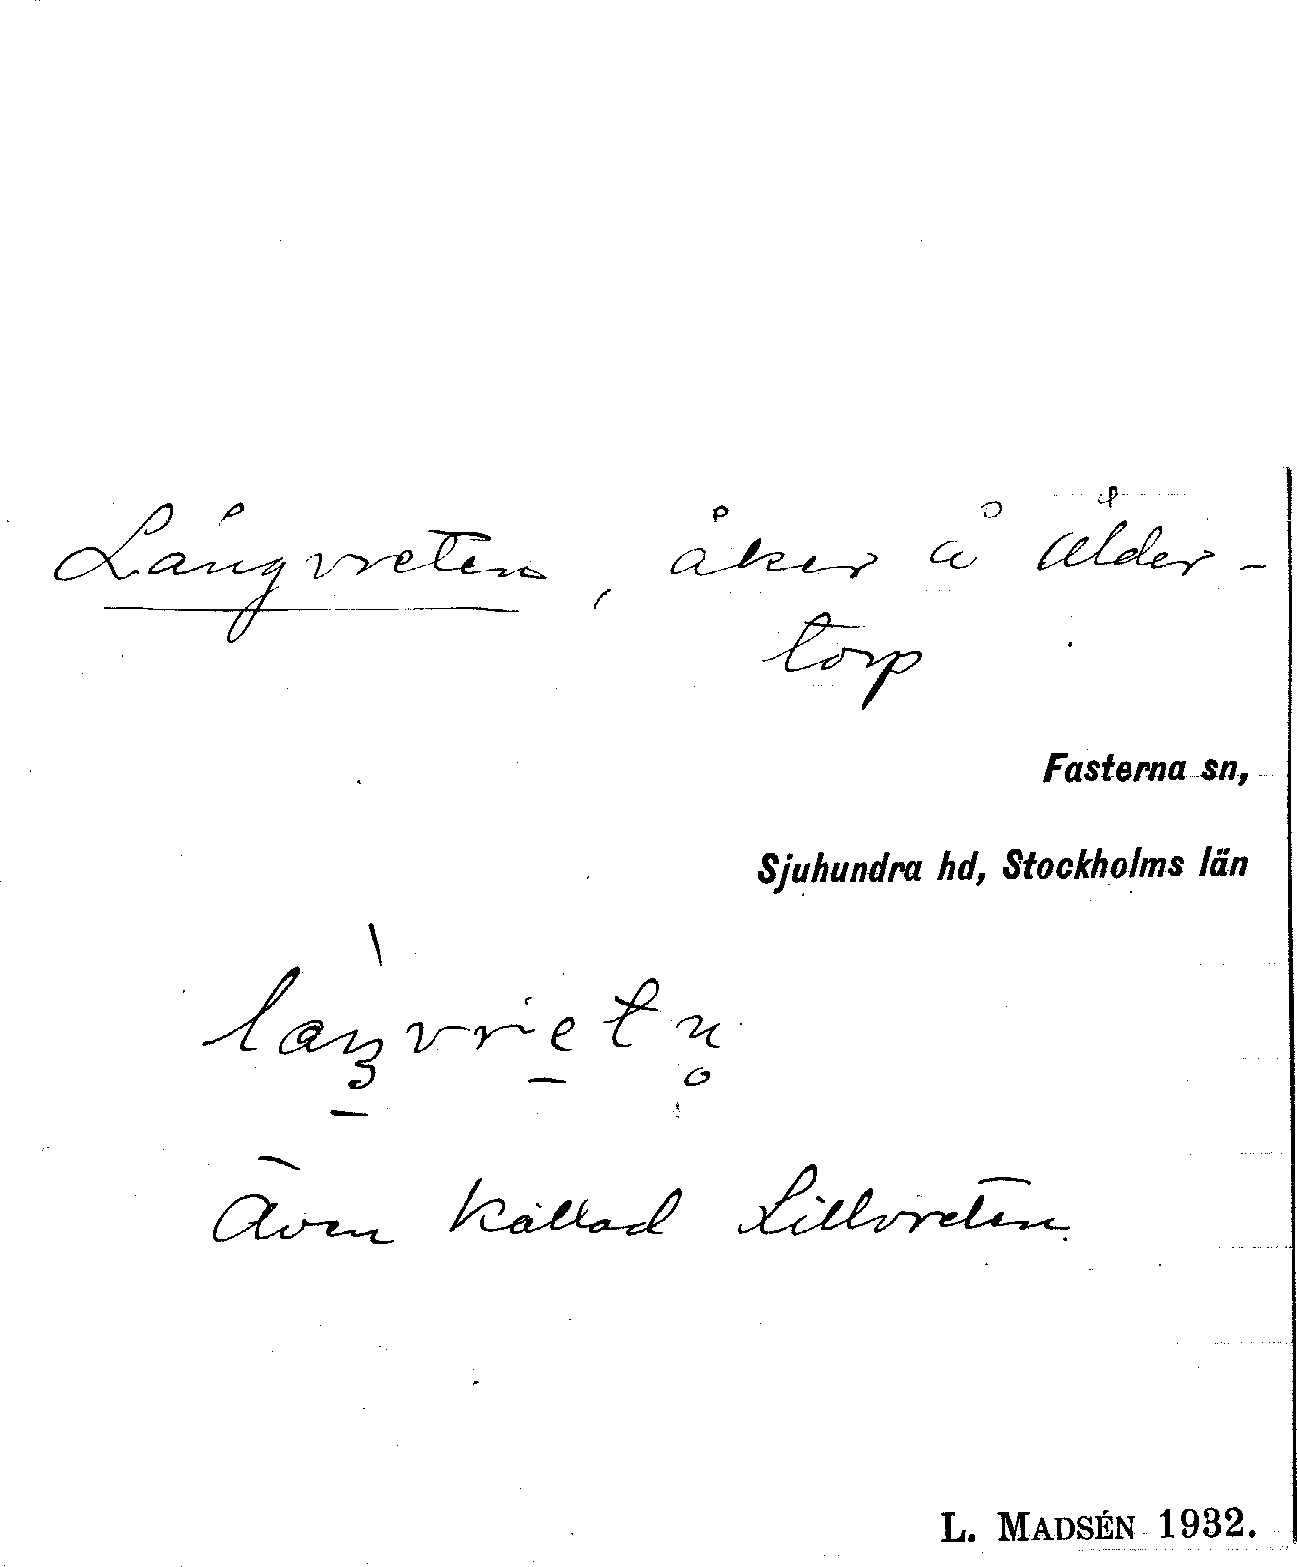 Långvreten, åker å Ålder-
torp
Fasterna sn,
Sjuhundra hd, Stockholms län
Även kallad Lillvreten.
L. MADSÉN 1932.